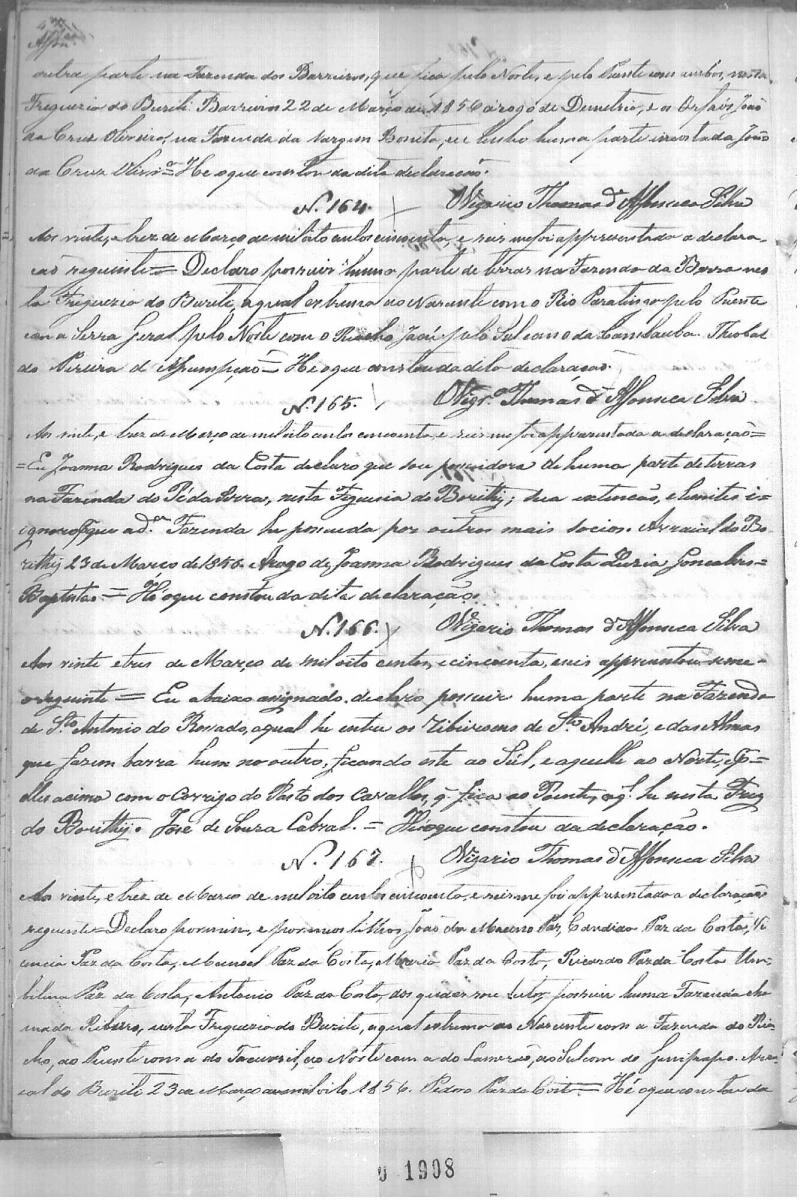 outra parte na Fazenda dos Barreiros, que fica pelo Norte, e pelo Puente com ambos, nesta
Freguezia do Buriti. Barreiros 22 de Março de 1856 a rogo de Demetrio, e os Orphãos João
da Cruz Oliveira, na Fazenda da Vargem Bonita, eu tenho huma parte João
da Cruz Olivrª = He o que constou da dita declaração.
Vigario Thomas d'Affonseca Silva
N. 164.
Aos vinte, e trez de Março de mil oito centos cincoenta, e seis me foi appresentado a declara-
cão seguinte = Declaro possuir huma parte de terras na Fazenda da Barra nes
ta Freguezia do Buriti, a qual extrema ao Nascente com o Rio Paratinga pelo Puente
com a Serra Geral pelo Norte com o Riacho pelo Sul com o da Theobal
do Pereira d' Assumpção = He o que constou da dita declaração.
Vigrº Thomas d'Affonseca Silva
N. 165.
Aos vinte, e trez de Março de mil oito centos cincoenta, e seis me foi appresentada a declaração =
= Eu Joanna Rodrigues da Costa declaro que sou possuidora de huma parte de terras
na Fazenda do Pé da Serra, nesta Freguesia do Borithy; sua extenção, e limites i=
ignoro, que a dª Fazenda he possuida por outros mais socios. Arraial do Bo
rithy 23 de Março de 1856. Arogo de Joanna Rodrigues da Costa Luzia Goncalves =
Baptista = He o que constou da dita declaração.
Vigario Thomas d'Affonseca Silva
N. 166.
Aos vinte e tres de Março de mil oito centos, e cincoenta, e seis appresentou se me
o seguinte = Eu abaixo assignado, declaro possuir huma parte na Fazenda
de Stº Antonio do Rosado, a qual he entre os ribeiroens de Stº André, e das Almas
que fazem barra hum no outro, ficando este ao Sul, e aquelle ao Norte,
acima com o Corrigo do Pasto dos Cavallos, q. fica ao Poente, a ql. he nesta Freg
do Borithy. José de Souza Cabral. = He o que constou da declaração.
Vigario Thomas d'Affonseca Silva
N. 167.
Aos vinte, e trez de Março de mil oito centos cincoenta, e seis me foi appresentado a declaração
seguinte = Declaro por mim, e por meus filhos João Paz, Candido Paz da Costa, Vi
cencia Paz da Costa, Manoel Paz da Costa, Maria Paz da Costa, Ricardo Paz da Costa Um-
bilina Paz da Costa, Antonio Paz da Costa, dos quaes sou tutor, possuir huma Fazenda cha
mada Ribeiro, nesta Freguezia do Buriti, a qual extrema ao Nascente com a Fazenda do Ria
cho, ao Puente com a do ao Norte com a do Lameirão, ao Sul com do Genipapo. Arra
ial do Buriti 23 de Março de mil oito 1856. Pedro Paz da Costa = He o que constou da
0 1908